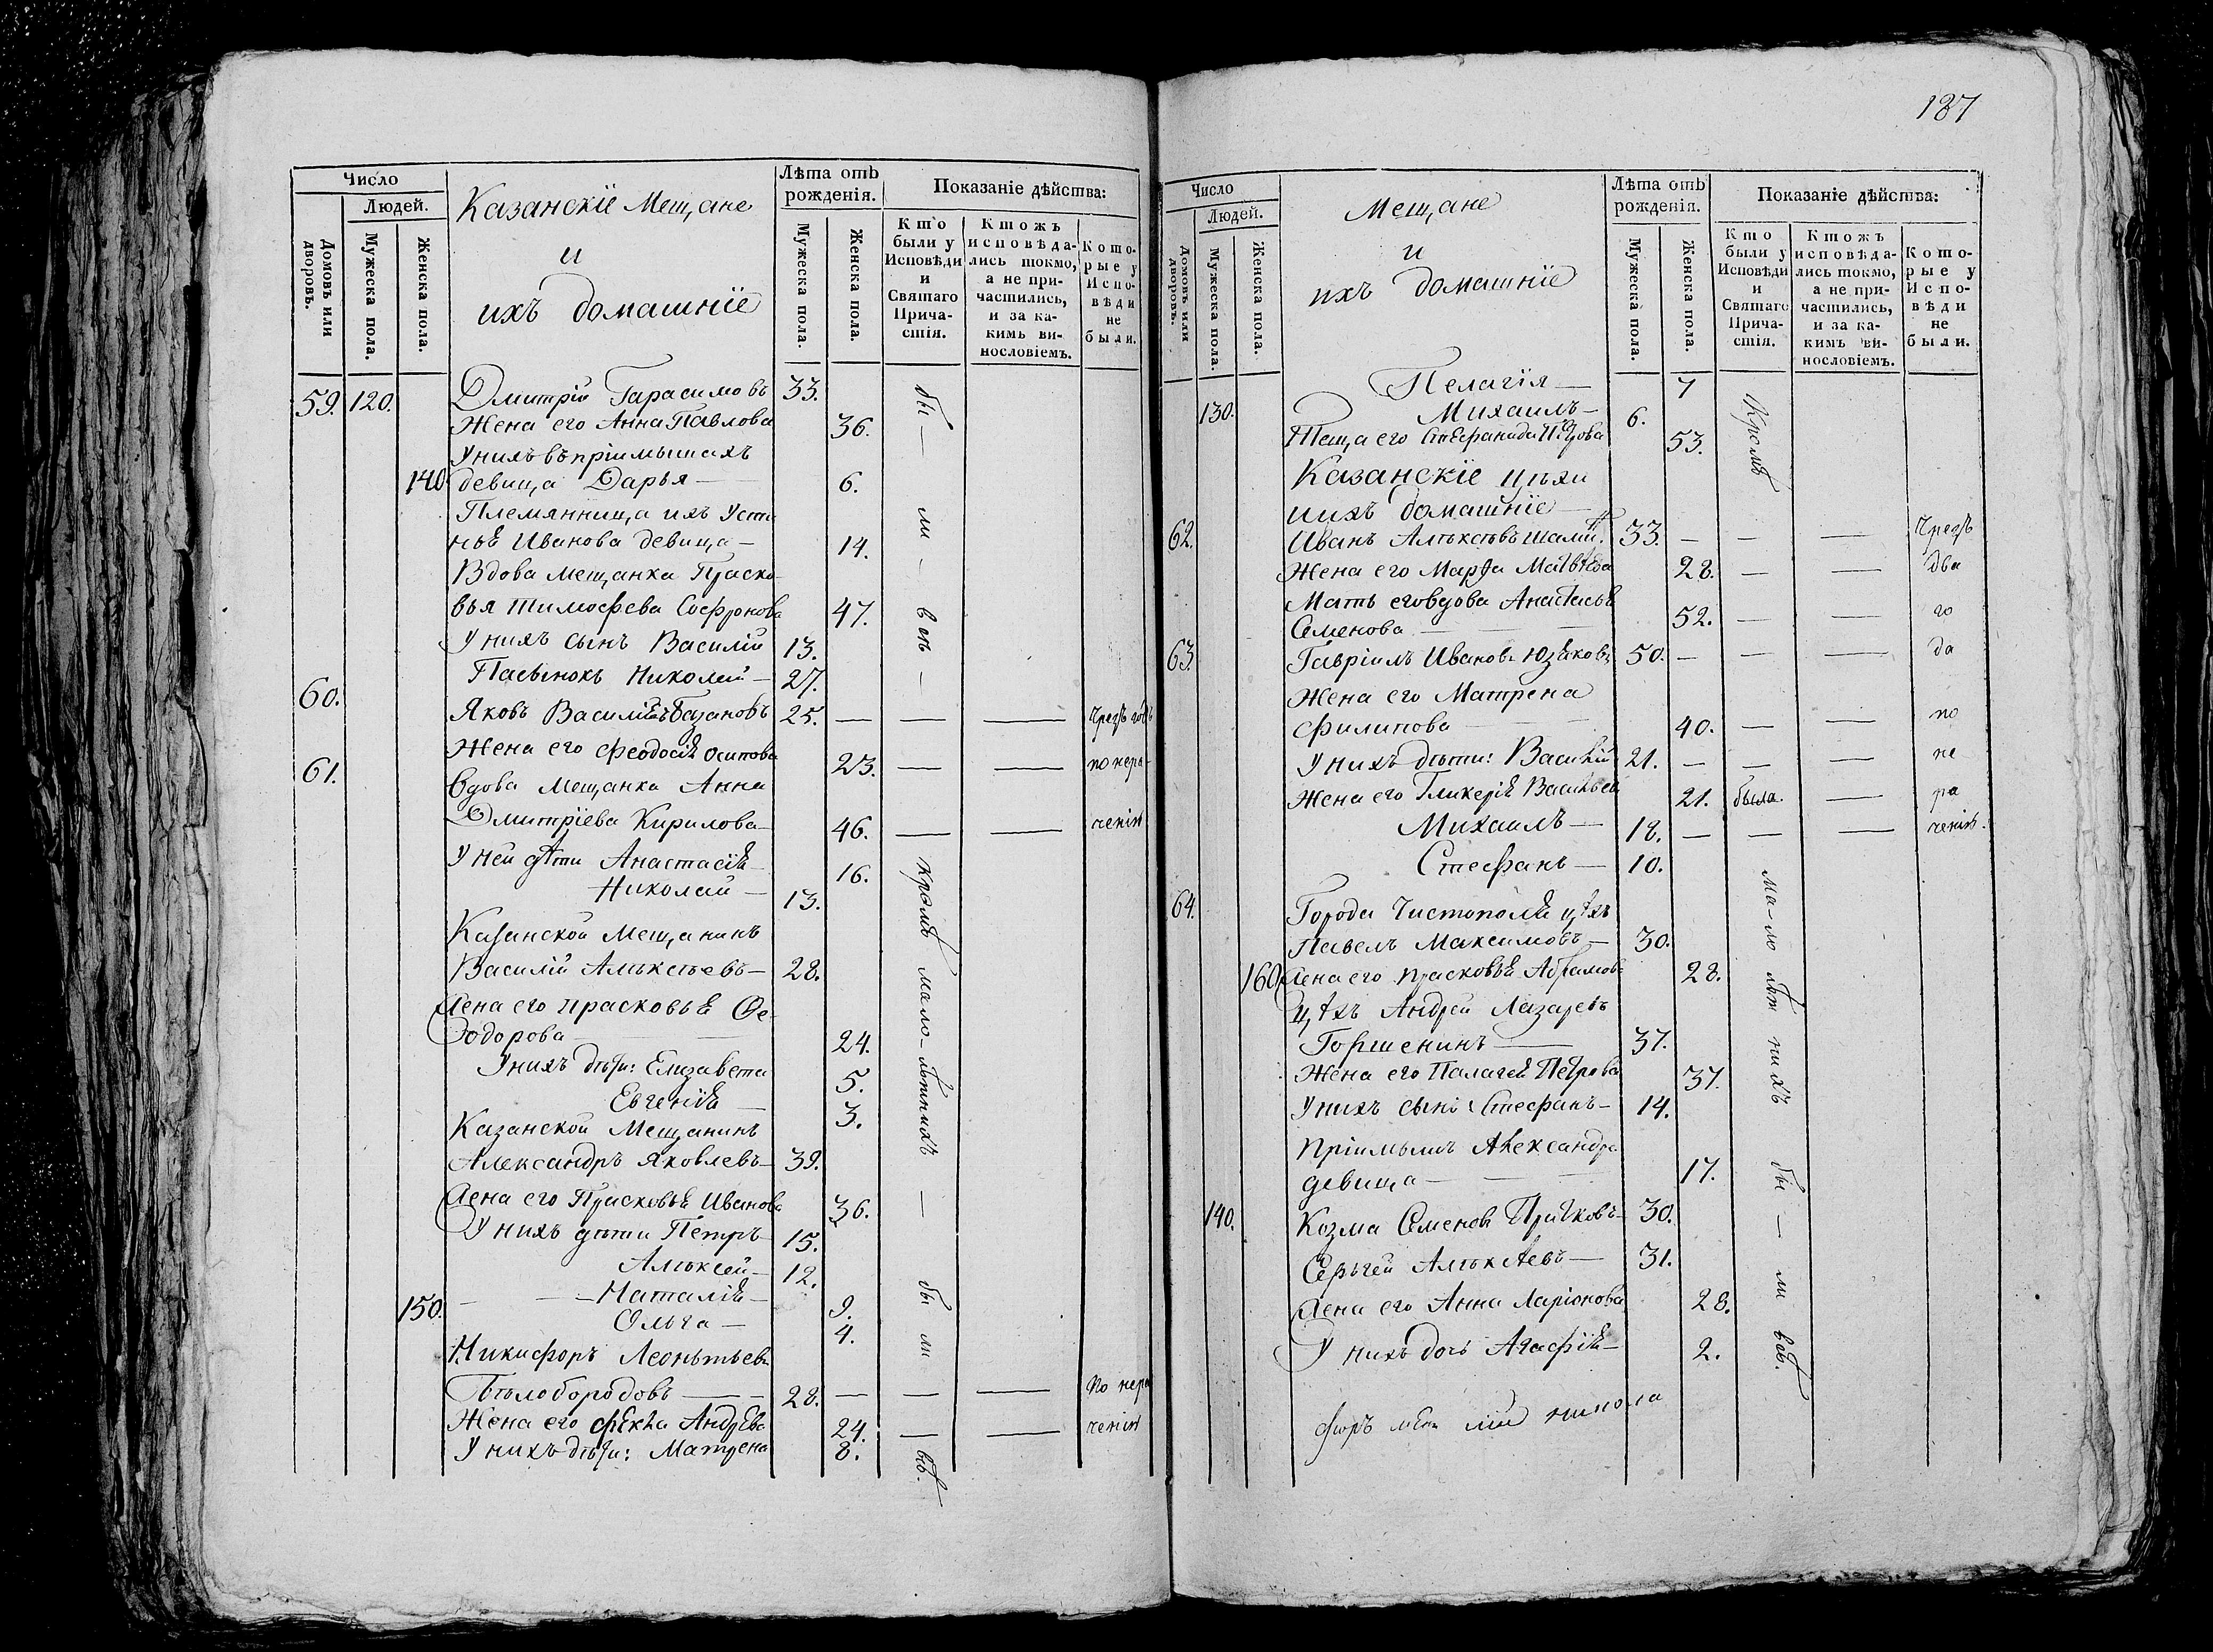 187
Число
Людей.
Домовъ или дворовъ.
Мужеска пола.
Женска пола.
Казанскіе Мещане
и
ихъ домашніе
Лѣта отъ рожденія.
Мужеска пола.
Женска пола.
Показаніе дѣйства:
Кто были у Исповѣди и Святаго Причастія.
Ктожъ исповѣдались токмо, а не причастились, и за какимъ винословіемъ.
Которые у Исповѣди не были.
59. 120. Дмитрій Гарасимовъ 33.
Жена его Анна Павлова 36.
У нихъ въ пріимышахъ
140 девица Дарья — 6.
Племянница ихъ Усти
нья Иванова девица — 14.
Вдова мещанка Праско
вья Тимофеева Софронова 47.
У нихъ сынъ Василій 13.
Пасынокъ Николай — 27.
бы — ли — всѣ —
60. Яковъ Васильевъ Базановъ 25. — — — чрезъ годъ
Жена его Феодосія Осипова 23. — — по нера
61. Вдова Мещанка Анна
Дмитріева Кирилова — 46. — — ченію
У ней дѣти Анастасія — 16.
Николай — 13.
Казанской Мещанинъ
Василій Алѣксѣевъ — 28.
Жена его Прасковья Фе
одорова — 24.
У нихъ дѣти: Елизавета 5.
Евгенія — 3.
Казанской Мещанинъ
Александръ Яковлевъ — 39.
Жена его Прасковья Иванова 36.
У нихъ дѣти Петръ — 15.
Алѣксей — 12.
150. — — Наталія — 9.
Ольга — 4.
кромѣ мало-лѣтнихъ — бы ли всѣ.
Никифоръ Леонтьевъ
Бѣлобородовъ — — 28. — — — По нера
Жена его Фекла Андрева 24. — — ченію
У нихъ дѣти: Матрена 8.
Число
Людей.
Домовъ или дворовъ.
Мужеска пола.
Женска пола.
Мещане
и
ихъ домашніе
Лѣта отъ рожденія.
Мужеска пола.
Женска пола.
Показаніе дѣйства:
Кто были у Исповѣди и Святаго Причастія.
Ктожъ исповѣдались токмо, а не причастились, и за какимъ винословіемъ.
Которые у Исповѣди не были.
Пелагія — 7
130. Михаилъ — 6.
Теща его Петрова 53.
Кромѣ
Казанскіе цѣхи
и ихъ домашніе —
62. Иванъ Алѣксѣевъ 33. — — — Чрезъ
Жена его Марфа Матвѣева 28. — — два
Мать его вдова Анастасья
Семенова — — — 52. — — го
63. Гавріилъ Иванов 50. — — — да
Жена его Матрена
Филипова — — 40. — — по
У нихъ дѣти: Василій 21. — — — не
Жена его Гликерія Васильева 21. была. — ра
Михаилъ — 18. — — — ченію.
Стефанъ — 10.
64. Города Чистополя цѣхъ
Павелъ Максимовъ — 30.
160. Жена его Прасковья Абрамов 28.
Цѣхъ Андрей Лазаревъ
Горшенинъ — 37.
Жена его Палагея Петрова 37.
У нихъ сынъ Стефанъ — 14.
Пріимышъ Александра
девица — — 17.
140. Козма Семенов 30.
Серьгей Алѣксѣевъ — 31.
Жена его Анна Ларіонова 28.
У нихъ дочь Агафія — 2.
ма-ло лѣт нихъ бы — ли всѣ.